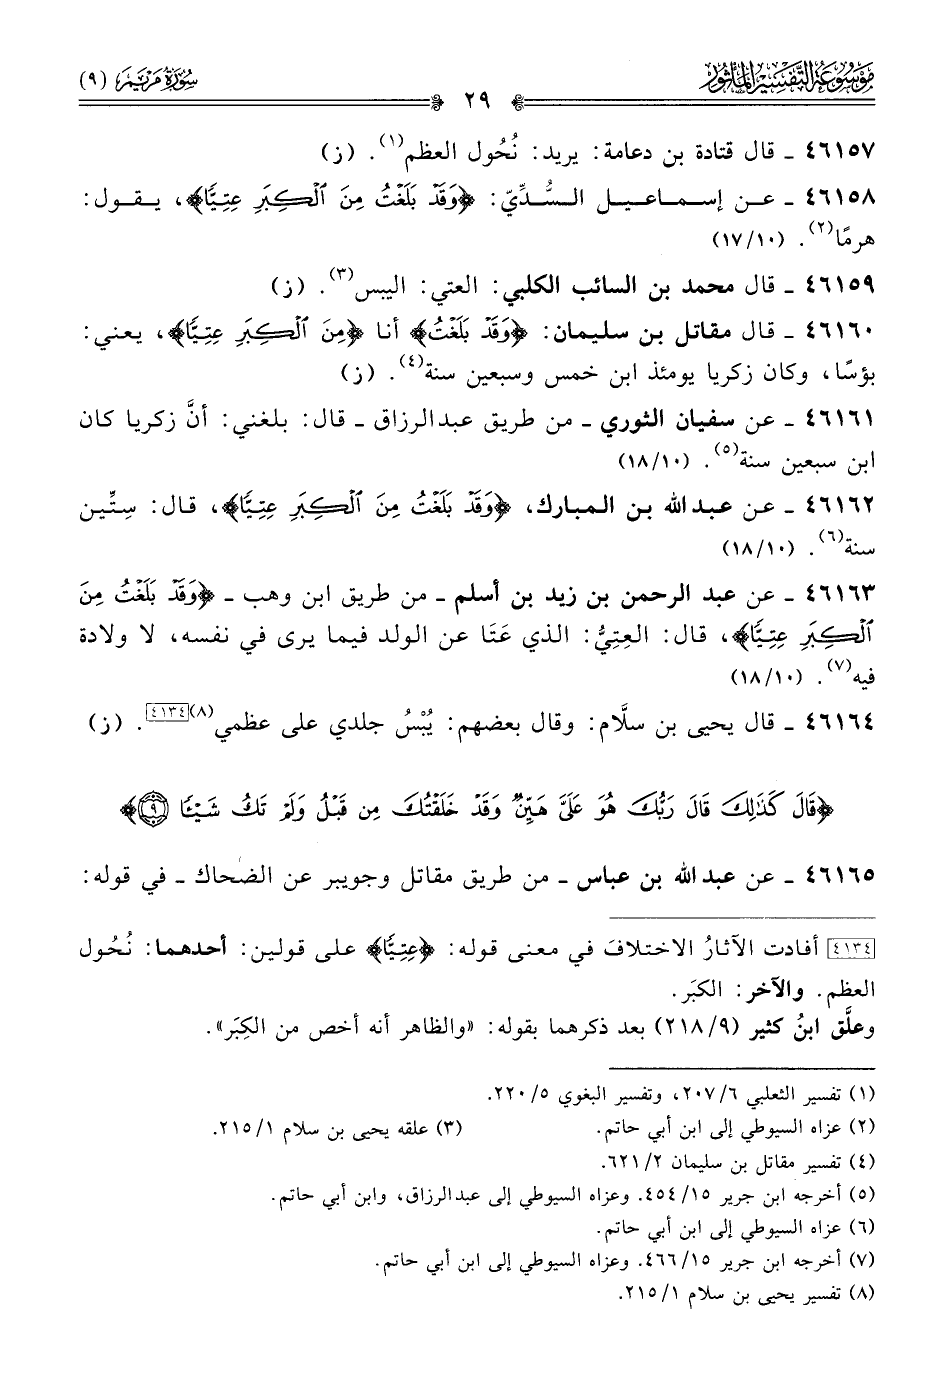 مَوْسُوعَةُ التَّفْسِيرِ المَأْثُور
سُورَةُ مَرْيَم (٩)
٢٩
٤٦١٥٧ ـ قال قتادة بن دعامة: يريد: نُحُول العظم(١). (ز)
٤٦١٥٨ ـ عن إسماعيل السُّدِّيّ: ﴿وَقَدْ بَلَغْتُ مِنَ ٱلْكِبَرِ عِتِيًّا﴾، يقول:
هرمًا(٢). (١٧/١٠)
٤٦١٥٩ ـ قال محمد بن السائب الكلبي: العتي: اليبس(٣). (ز)
٤٦١٦٠ ـ قال مقاتل بن سليمان: ﴿وَقَدْ بَلَغْتُ﴾ أنا ﴿مِنَ ٱلْكِبَرِ عِتِيًّا﴾، يعني:
بؤسًا، وكان زكريا يومئذ ابن خمس وسبعين سنة(٤). (ز)
٤٦١٦١ ـ عن سفيان الثوري ـ من طريق عبدالرزاق ـ قال: بلغني: أنَّ زكريا كان
ابن سبعين سنة(٥). (١٨/١٠)
٤٦١٦٢ ـ عن عبدالله بن المبارك، ﴿وَقَدْ بَلَغْتُ مِنَ ٱلْكِبَرِ عِتِيًّا﴾، قال: سِتِّين
سنة(٦). (١٨/١٠)
٤٦١٦٣ ـ عن عبد الرحمن بن زيد بن أسلم ـ من طريق ابن وهب ـ ﴿وَقَدْ بَلَغْتُ مِنَ
ٱلْكِبَرِ عِتِيًّا﴾، قال: العِتِيُّ: الذي عَتَا عن الولد فيما يرى في نفسه، لا ولادة
فيه(٧). (١٨/١٠)
٤٦١٦٤ ـ قال يحيى بن سلَّام: وقال بعضهم: يُبْسُ جلدي على عظمي(٨)[٤١٣٤]. (ز)
﴿قَالَ كَذَٰلِكَ قَالَ رَبُّكَ هُوَ عَلَىَّ هَيِّنٌ وَقَدْ خَلَقْتُكَ مِن قَبْلُ وَلَمْ تَكُ شَيْـًٔا ٩﴾
٤٦١٦٥ ـ عن عبدالله بن عباس ـ من طريق مقاتل وجويبر عن الضحاك ـ في قوله:
[٤١٣٤] أفادت الآثارُ الاختلافَ في معنى قوله: ﴿عِتِيًّا﴾ على قولين: أحدهما: نُحُول
العظم. والآخر: الكبَر.
وعلَّق ابنُ كثير (٢١٨/٩) بعد ذكرهما بقوله: «والظاهر أنه أخص من الكِبَر».
(١) تفسير الثعلبي ٢٠٧/٦، وتفسير البغوي ٢٢٠/٥.
(٢) عزاه السيوطي إلى ابن أبي حاتم. (٣) علقه يحيى بن سلام ٢١٥/١.
(٤) تفسير مقاتل بن سليمان ٦٢١/٢.
(٥) أخرجه ابن جرير ٤٥٤/١٥. وعزاه السيوطي إلى عبدالرزاق، وابن أبي حاتم.
(٦) عزاه السيوطي إلى ابن أبي حاتم.
(٧) أخرجه ابن جرير ٤٦٦/١٥. وعزاه السيوطي إلى ابن أبي حاتم.
(٨) تفسير يحيى بن سلام ٢١٥/١.